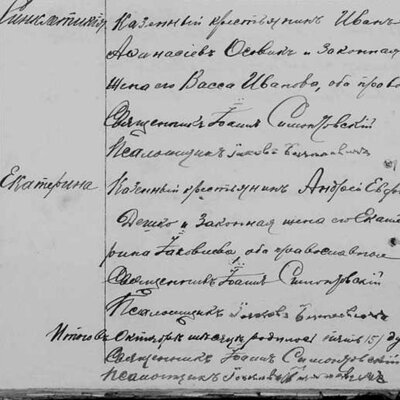 Синклитикия
Казенный крестьянинъ Иванъ
Афанасіевъ Осовикъ и Законная
жена его Васса Иванова, оба право
Священникъ Іоаннъ
Псаломщикъ Іаковъ
Екатерина
Казенный крестьянинъ Андрей
Дешко и Законная жена его Екате
рина Іаковлева, оба православные
Священникъ Іоаннъ
Псаломщикъ Іаковъ
Итого въ Октябрѣ мѣсяцѣ родилось
Священникъ Іоаннъ
Псаломщикъ Іаковъ